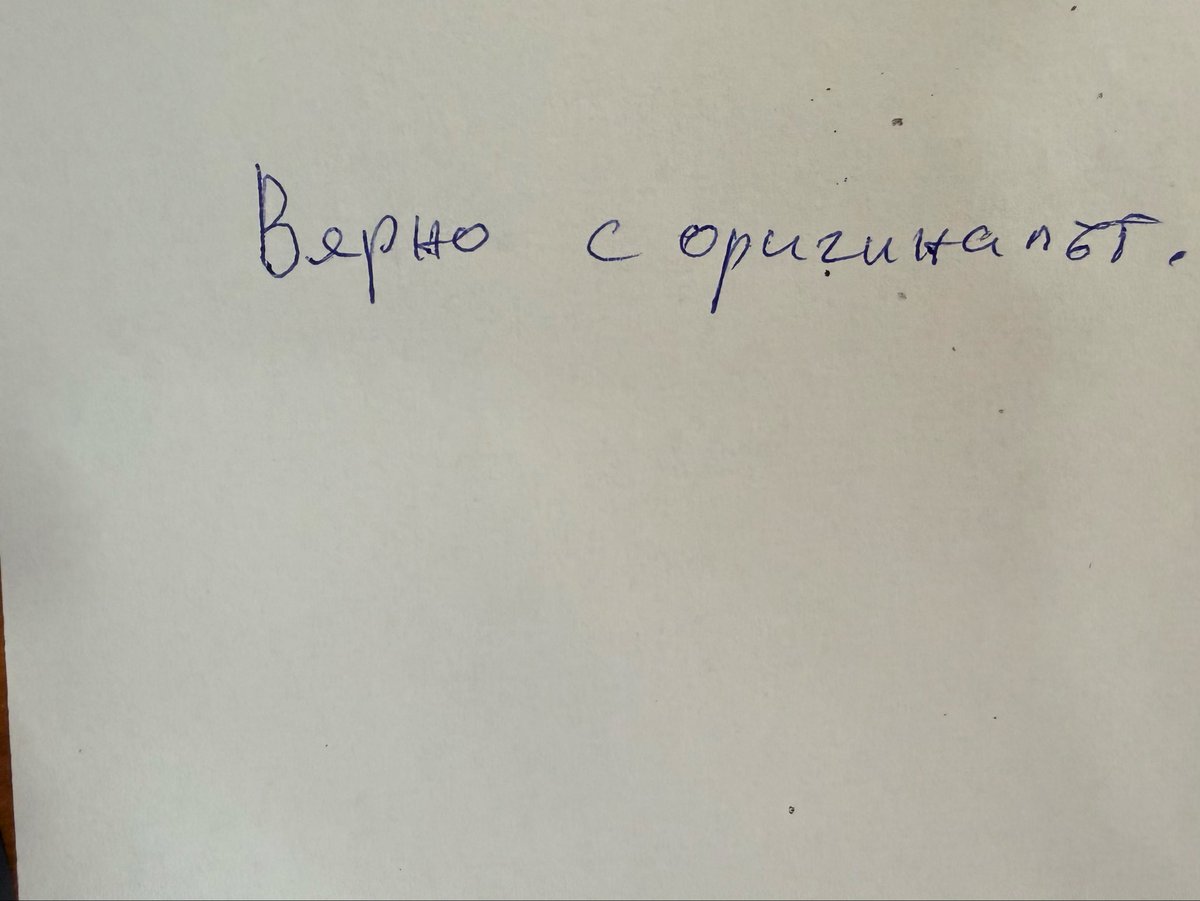 Вярно с оригиналът.